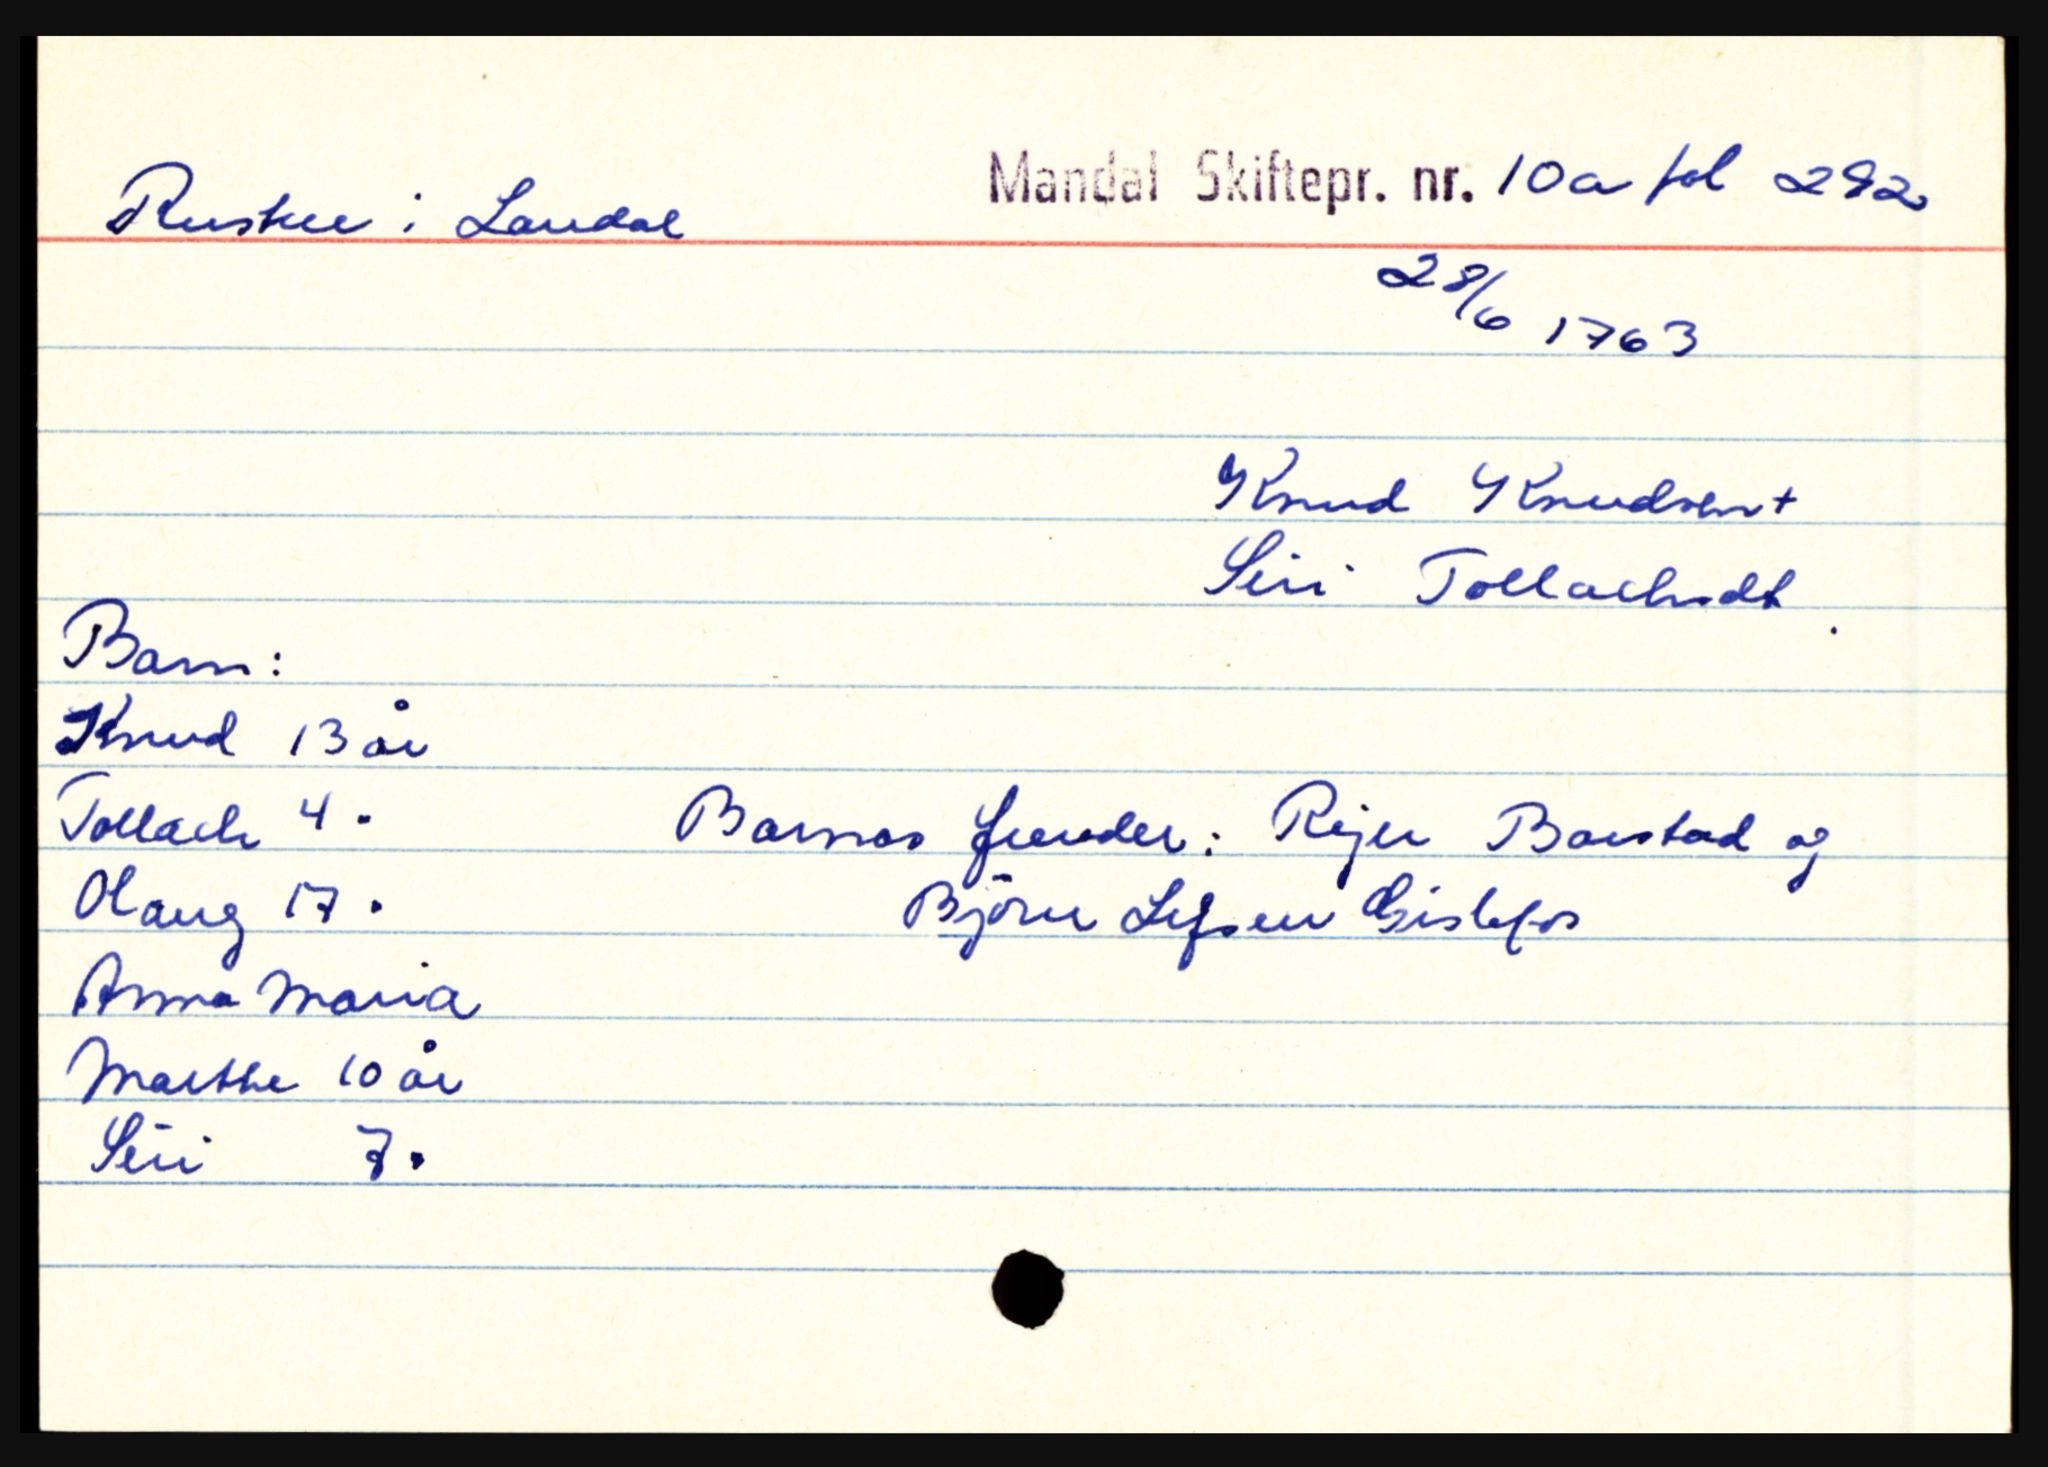 Mandal Skiftepr. nr. 10a fol 292
Ruskee i Laudal
28/6 1763
Knud Knudsen +
Siri Tollachsdt.
Barn:
Knud 13 år
Tollach 4 "
Barnas frender: Rejer Barstad og
Olaug 17 "
Björn Lefsen Gislefos
Anna Maria
Marthe 10 år
Siri 7 "